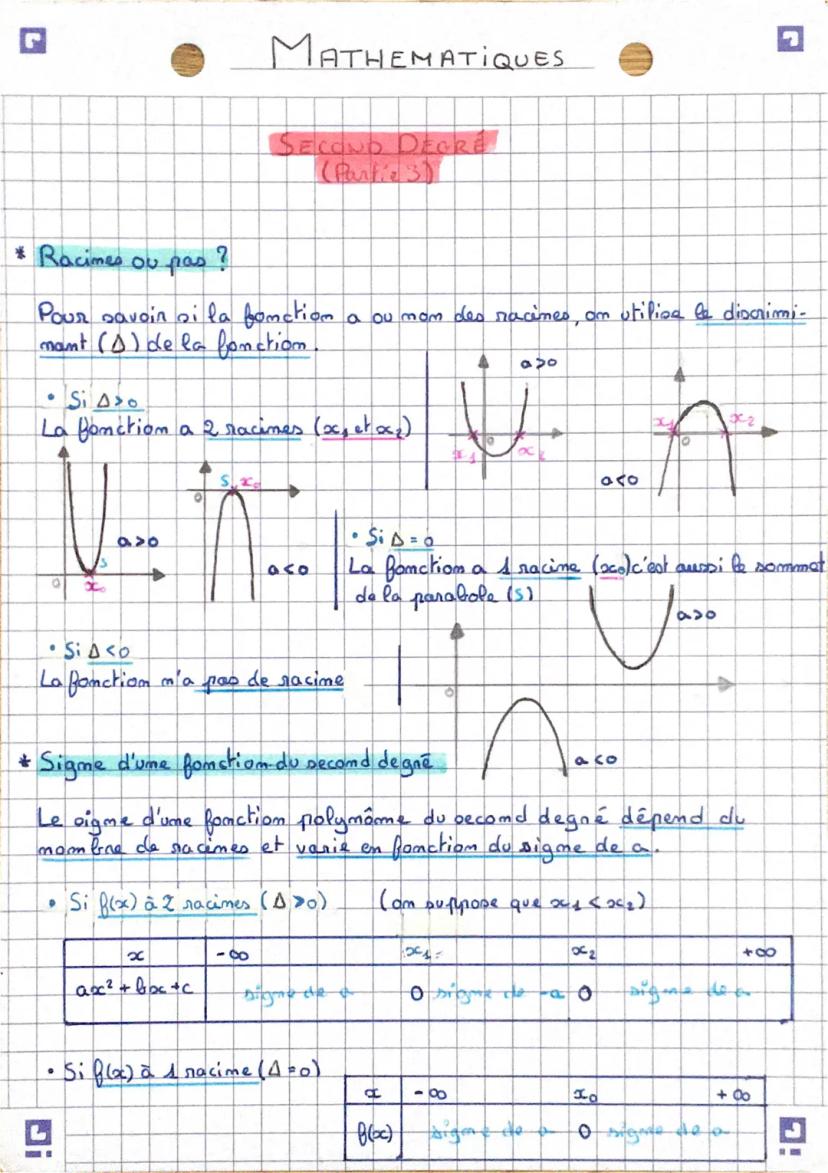 MATHEMATIQUES
SECOND DEGRÉ
(Partie 3)
* Racines ou pas ?
Pour savoir si la fonction a ou non des racines, on utilise le discrimi-
nant (Δ) de la fonction.
• Si Δ>0
La fonction a 2 racines (x₁ et x₂)
a>0
x₁ 0 x₂
a<0
x₁ 0 x₂
a>0
0 x₀ S
S x₀
0
a<0
• Si Δ = 0
La fonction a 1 racine (x₀) c'est aussi le sommet
de la parabole (S)
• Si Δ<0
La fonction n'a pas de racine
a>0
0
a<0
* Signe d'une fonction du second degré
Le signe d'une fonction polynôme du second degré dépend du
nombre de racines et varie en fonction du signe de a.
• Si f(x) à 2 racines (Δ>0) (on suppose que x₁<x₂)
x -∞ x₁ x₂ +∞
ax² + bx + c signe de a 0 signe de -a 0 signe de a
• Si f(x) à 1 racine (Δ=0)
x -∞ x₀ +∞
f(x) signe de a 0 signe de a